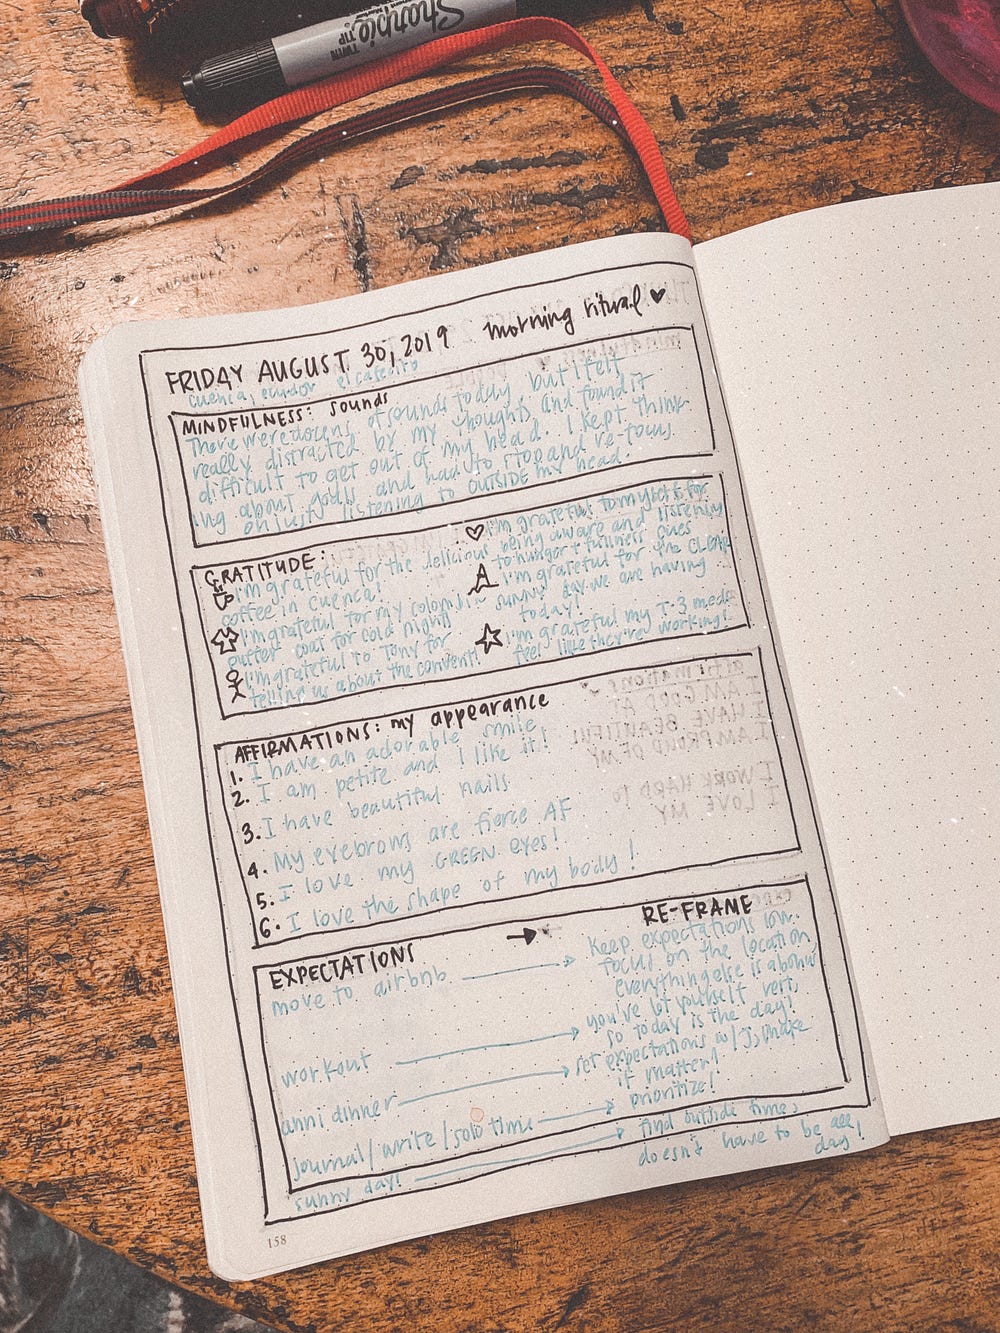 Sharpie
TWIN TIP
FRIDAY AUGUST 30, 2019 morning ritual
cuenca, ecuador el cafecito
MINDFULNESS: sounds
There were dozens of sounds today, but i felt
really distracted by my thoughts and found it
difficult to get out of my head. I kept think-
ing about and had to stop and re-focus
on just listening to OUTSIDE my head.
GRATITUDE:
I'm grateful for the delicious
coffee in cuenca!
I'm grateful for my colombia
puffer coat for cold nights
I'm grateful to Tony for
telling us about the convent!
I'm grateful to myself for
being aware and listening
to hunger + fullness cues
I'm grateful for the CLEAR
sunny day we are having
today!
I'm grateful my T-3 meds
feel like they're working!
AFFIRMATIONS: my appearance
1. I have an adorable smile
2. I am petite and I like it!
3. I have beautiful nails
4. My eyebrows are fierce AF
5. I love my GREEN eyes!
6. I love the shape of my body!
affirmations
I AM GOOD AT
I HAVE BEAUTIFUL
I AM PROUD OF MY
I WORK HARD TO
I LOVE MY
EXPECTATIONS → RE-FRAME
move to airbnb → keep expectations low.
focus on the location,
everything else is a bonus
workout → you've let yourself rest,
so today is the day!
anni dinner → set expectations w/ J, make
it matter!
journal/write/solo time → prioritize!
sunny day! → find outside time,
doesn't have to be all
day!
158